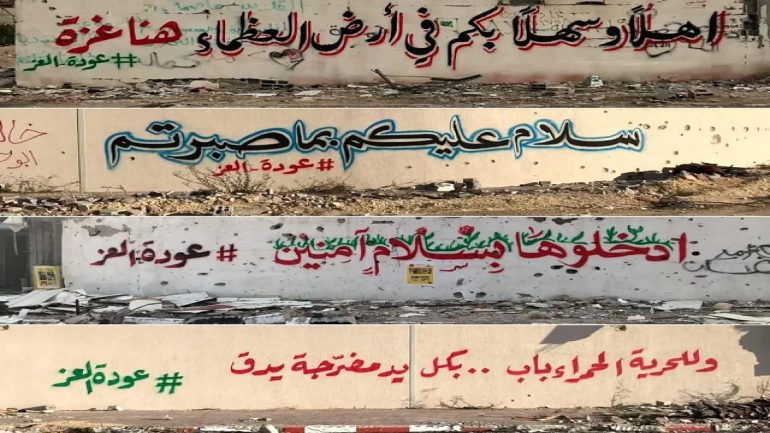 اهلًا وسهلًا بكم في أرض العظماء هنا غزة
#عودة_العز
سلام عليكم بما صبرتم
#عودة_العز
ادخلوها بسلامٍ آمنين #عودة_العز
وللحرية الحمراء باب .. بكل يد مضرّجة يدق
#عودة العز